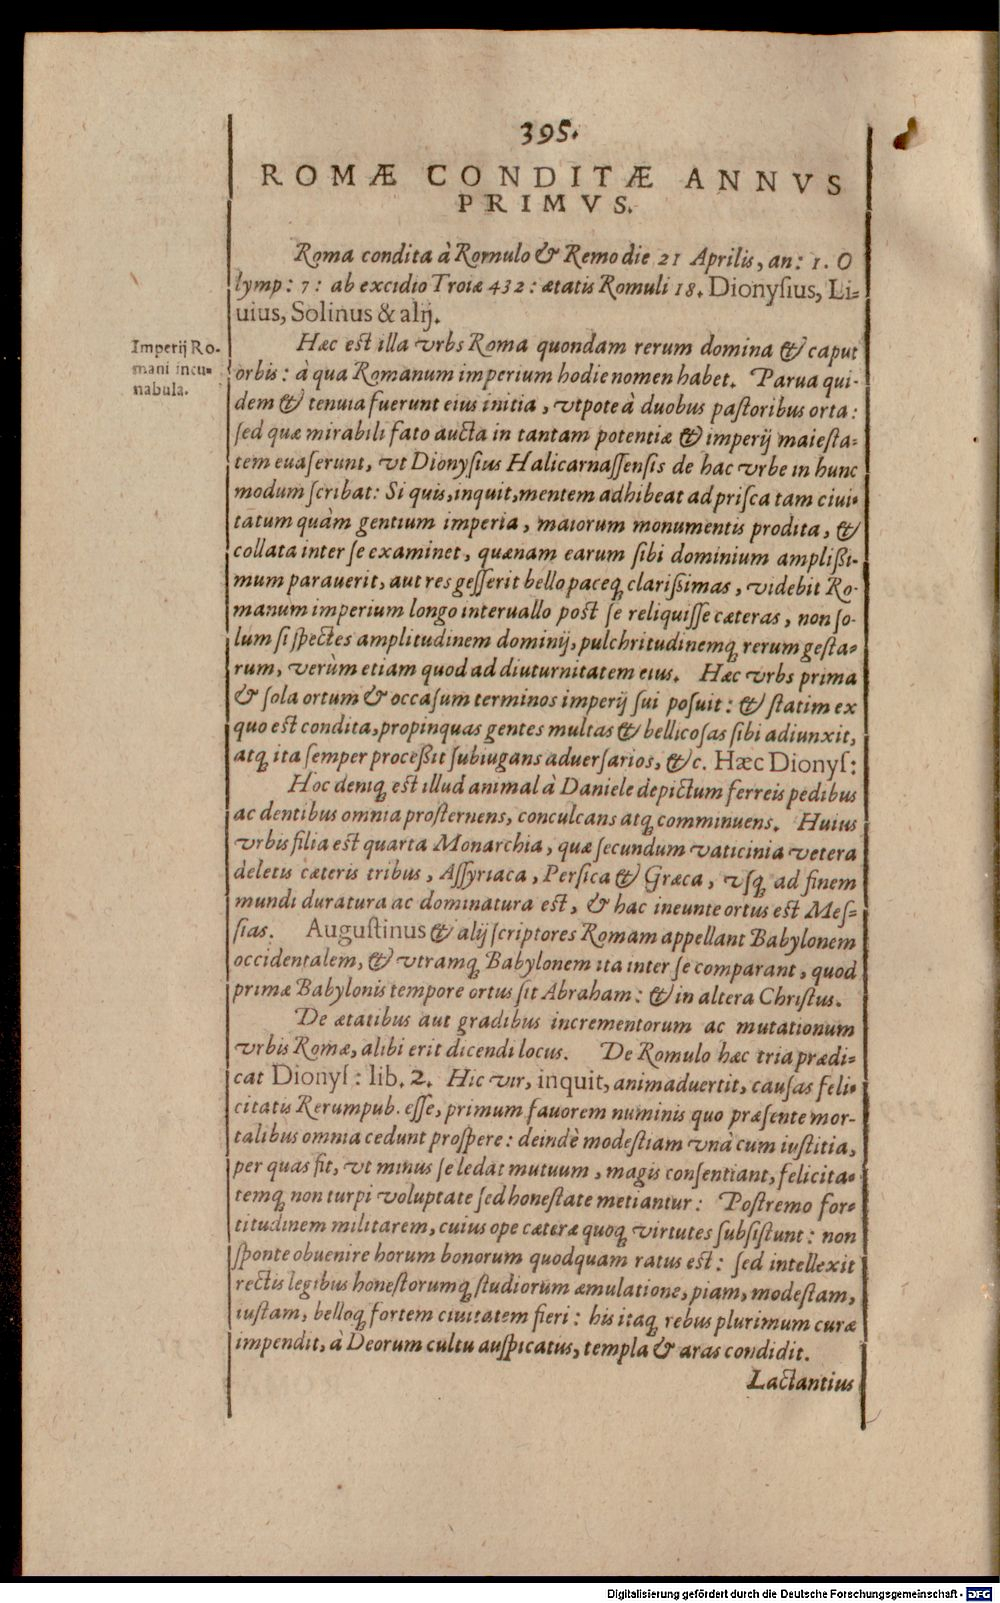 395.
ROMÆ CONDITÆ ANNVS
PRIMVS.
Roma condita à Romulo & Remo die 21 Aprilis, an: 1. O
lymp: 7: ab excidio Troiæ 432: ætatis Romuli 18. Dionyſius, Li-
uius, Solinus & alij.
Imperij Ro-
mani incu-
nabula.
Hæc est illa vrbs Roma quondam rerum domina & caput
orbis: à qua Romanum imperium hodie nomen habet. Parua qui-
dem & tenuia fuerunt eius initia, vtpote à duobus paſtoribus orta:
ſed quæ mirabili fato aucta in tantam potentiæ & imperij maieſta-
tem euaſerunt, vt Dionyſius Halicarnaſſenſis de hac vrbe in hunc
modum ſcribat: Si quis, inquit, mentem adhibeat ad priſca tam ciui-
tatum quàm gentium imperia, maiorum monumentis prodita, &
collata inter ſe examinet, quænam earum ſibi dominium ampliſſi-
mum parauerit, aut res geſſerit bello paceq́ clariſſimas, videbit Ro-
manum imperium longo interuallo poſt ſe reliquiſſe cæteras, non ſo-
lum ſi ſpectes amplitudinem dominij, pulchritudinemq́ rerum geſta-
rum, verùm etiam quod ad diuturnitatem eius. Hæc vrbs prima
& ſola ortum & occaſum terminos imperij ſui poſuit: & ſtatim ex
quo eſt condita, propinquas gentes multas & bellicoſas ſibi adiunxit,
atq́ ita ſemper proceſſit ſubiugans aduerſarios, &c. Hæc Dionyſ:
Hoc deniq́ eſt illud animal à Daniele depictum ferreis pedibus
ac dentibus omnia proſternens, conculcans atq́ comminuens. Huius
vrbis filia eſt quarta Monarchia, quæ ſecundum vaticinia vetera
deletis cæteris tribus, Aſſyriaca, Perſica & Græca, vſq́ ad finem
mundi duratura ac dominatura eſt, & hac ineunte ortus eſt Meſ-
ſias. Auguſtinus & alij ſcriptores Romam appellant Babylonem
occidentalem, & vtramq́ Babylonem ita inter ſe comparant, quod
primæ Babylonis tempore ortus ſit Abraham: & in altera Chriſtus.
De ætatibus aut gradibus incrementorum ac mutationum
vrbis Romæ, alibi erit dicendi locus. De Romulo hæc tria prædi-
cat Dionyſ: lib. 2. Hic vir, inquit, animaduertit, cauſas feli-
citatis Rerumpub. eſſe, primum fauorem numinis quo præſente mor-
talibus omnia cedunt proſpere: deindè modeſtiam vnà cum iuſtitia,
per quas fit, vt minus ſe ledat mutuum, magis conſentiant, felicita-
temq́ non turpi voluptate ſed honeſtate metiantur: Poſtremo for-
titudinem militarem, cuius ope cæteræ quoq́ virtutes ſubſiſtunt: non
ſponte obuenire horum bonorum quodquam ratus eſt: ſed intellexit
rectis legibus honeſtorumq́ ſtudiorum æmulatione, piam, modeſtam,
iuſtam, belloq́ fortem ciuitatem fieri: his itaq́ rebus plurimum curæ
impendit, à Deorum cultu auſpicatus, templa & aras condidit.
Lactantius
Digitalisierung gefördert durch die Deutsche Forschungsgemeinschaft - DFG